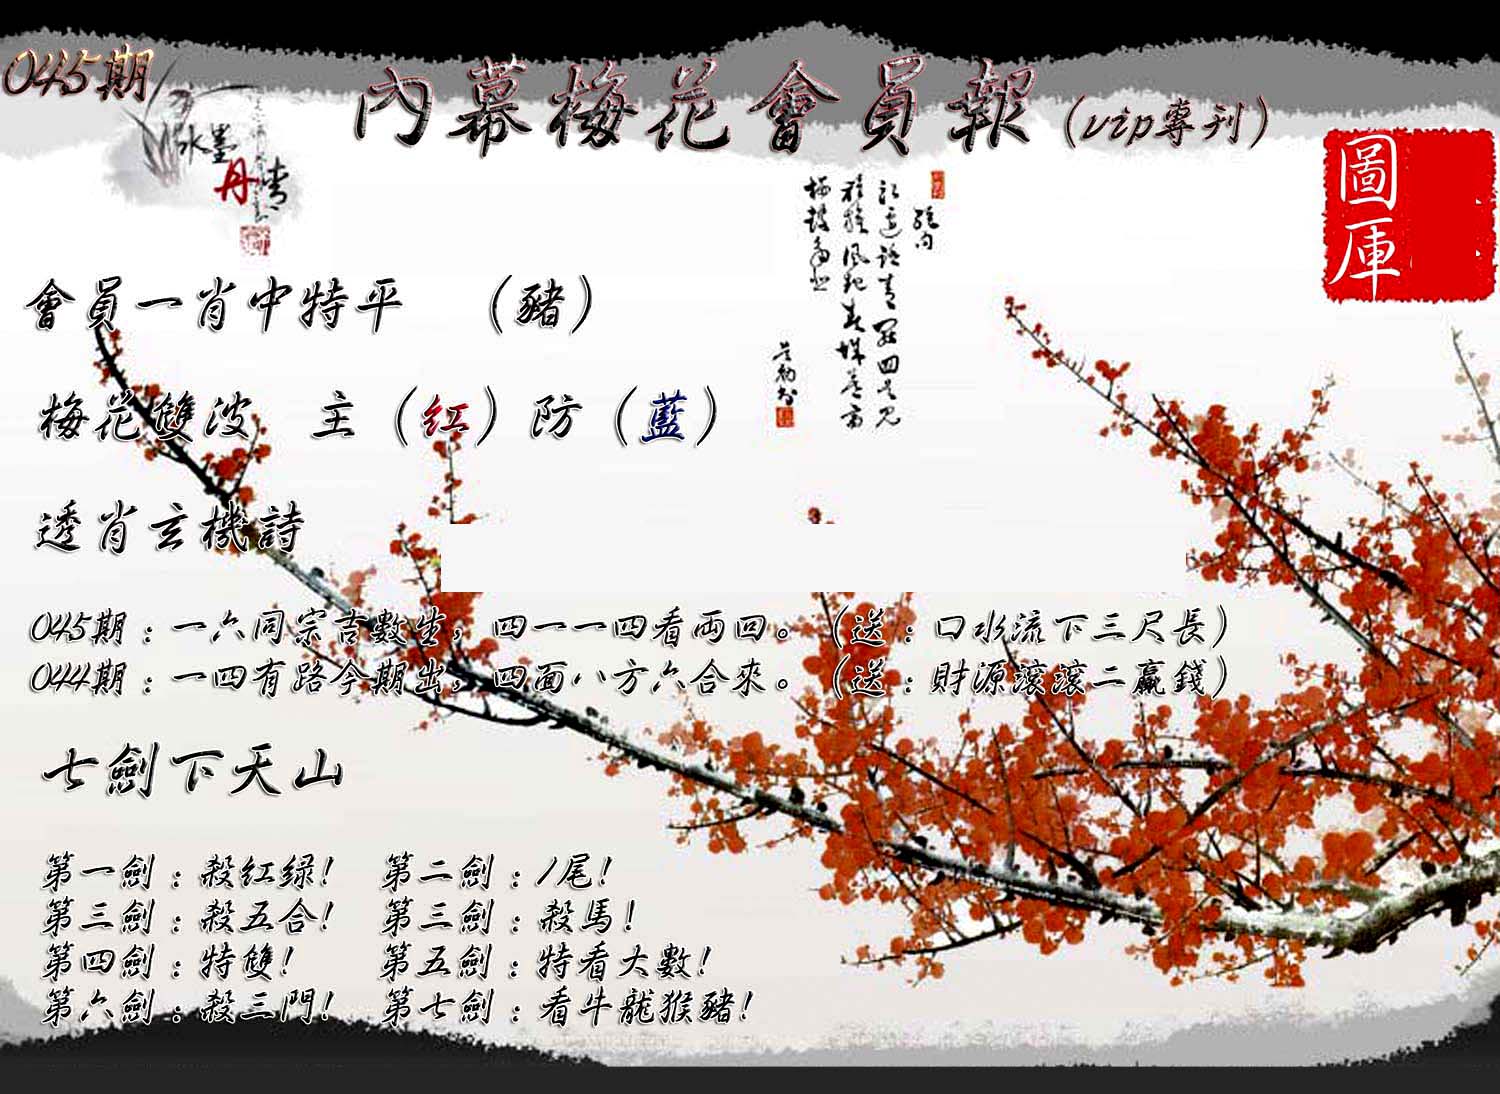 045期
內幕梅花會員報(vip專刊)
水墨
丹青
圖庫
會員一肖中特平 (豬)
梅花雙波 主(紅)防(藍)
透肖玄機詩
045期:一六同宗吉數生,四一一四看両回。(送:口水流下三尺長)
044期:一四有路今期出,四面八方六合來。(送:財源滾滾二贏錢)
七劍下天山
第一劍:殺紅绿! 第二劍:1尾!
第三劍:殺五合! 第三劍:殺馬!
第四劍:特雙! 第五劍:特看大數!
第六劍:殺三門! 第七劍:看牛龍猴豬!